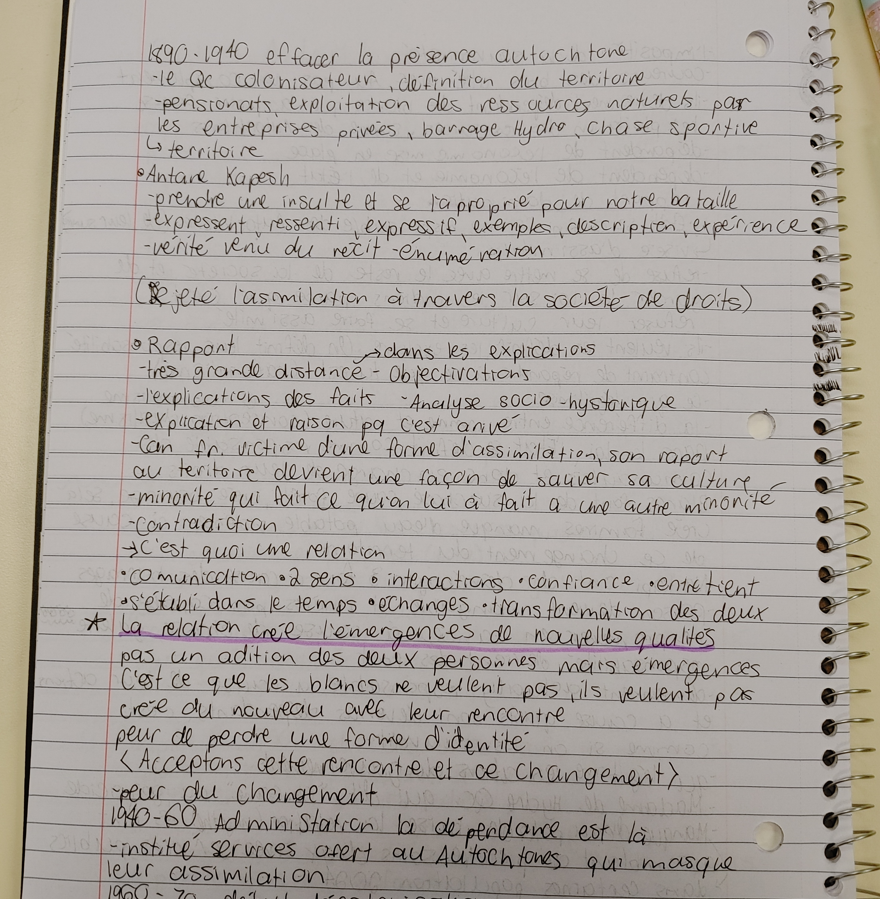 1890-1940 effacer la présence autochtone
-le Qc colonisateur, définition du territoire
-pensionats, exploitation des ressources naturels par
les entreprises privées, barrage Hydro, chase sportive
↳ territoire
•Antane Kapesh
-prendre une insulte et se l'aproprié pour notre bataille
-expressent, ressenti, expressif, exemples, description, expérience
-vérité venu du récit -énumération
(Rejeté l'asimilation à travers la société de droits)
•Rapport →dans les explications
-très grande distance - Objectivations
-l'explications des faits -Analyse socio-hystorique
-explication et raison pq c'est arivé
-Can fr. victime d'une forme d'assimilation, son raport
au teritoire devient une façon de sauver sa culture
-minorité qui fait ce qu'on lui à fait a une autre minorité
-Contradiction
→C'est quoi une relation
•comunication •2 sens •interactions •confiance •entretient
•s'établi dans le temps •échanges •transformation des deux
* La relation créé l'émergences de nouvelles qualités
pas un adition des deux personnes mais émergences
C'est ce que les blancs ne veulent pas, ils veulent pas
créé du nouveau avec leur rencontre
peur de perdre une forme d'identité
<Acceptons cette rencontre et ce changement>
-peur du changement
1940-60 Administation la dépendance est là
-institué services ofert au Autochtones qui masque
leur assimilation
1960-70